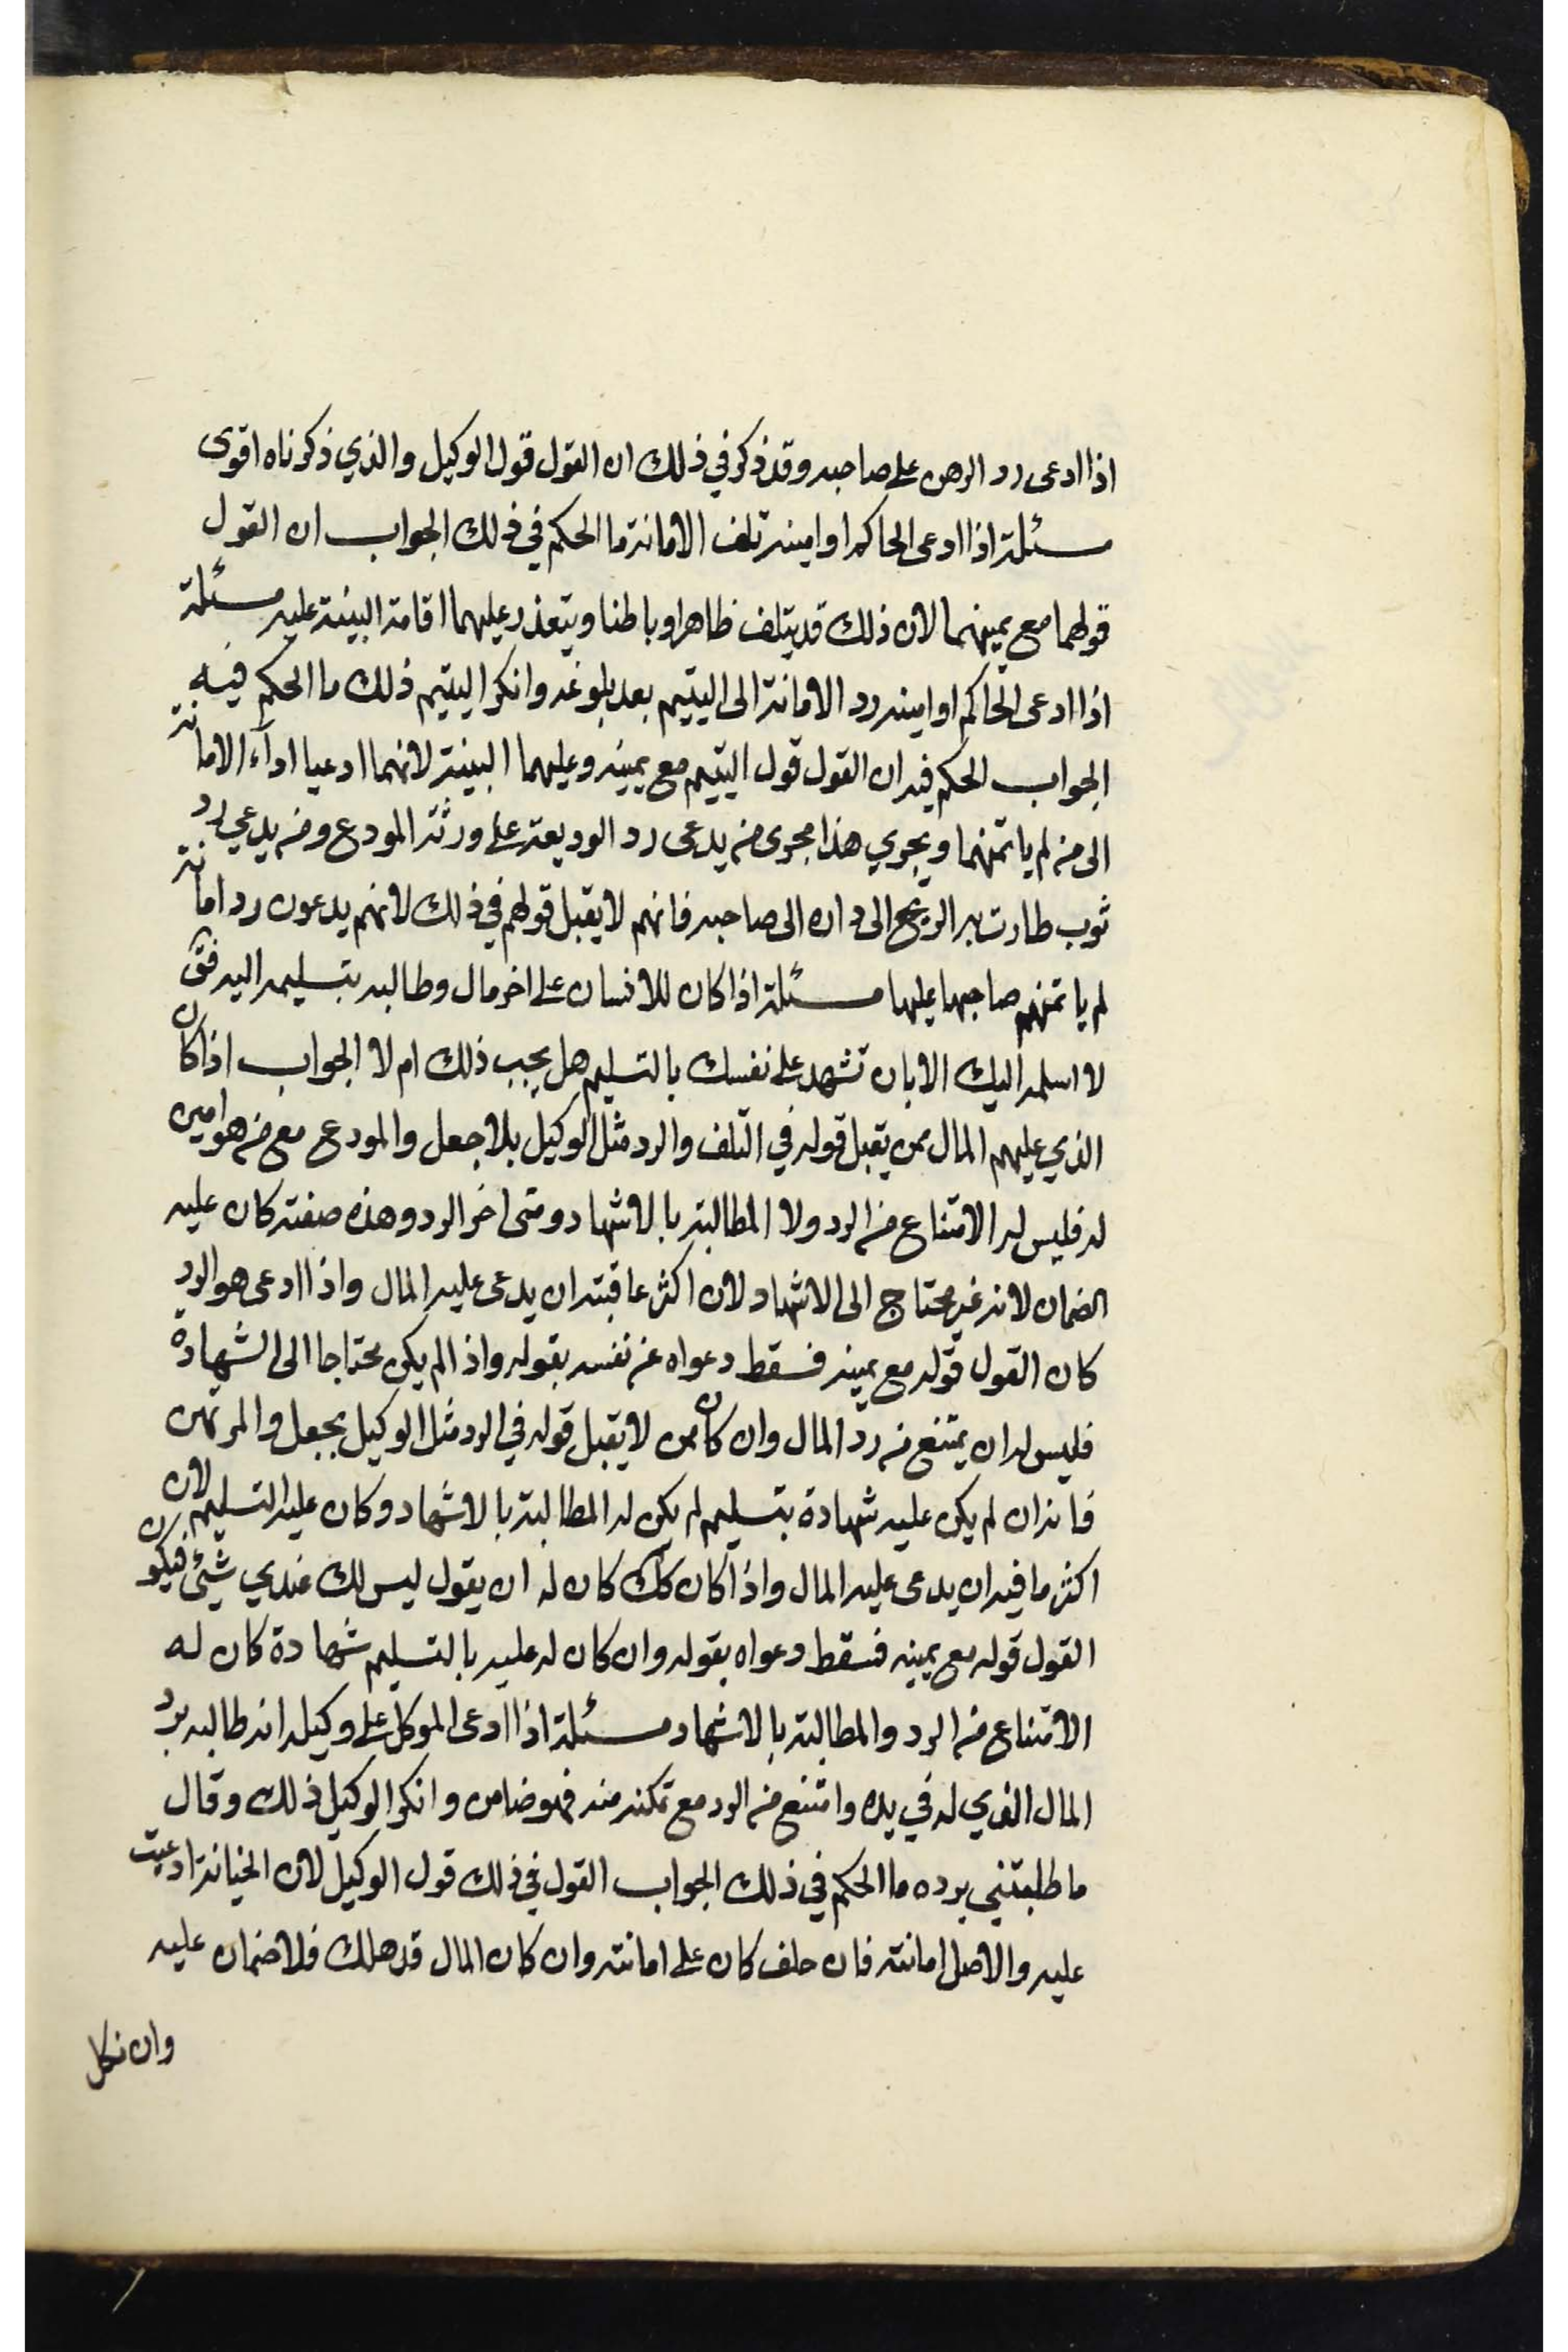 اذا ادعى رد الرهن على صاحبه وقد ذكر في ذلك ان القول قول الوكيل والذي ذكرناه اقوى
مسئلة اذا ادعى الحاكم او امينه تلف الامانة ما الحكم في ذلك الجواب ان القول
قولهما مع يمينهما لان ذلك قد يتلف ظاهرا وباطنا ويتعذر عليهما اقامة البينة عليه مسئلة
اذا ادعى الحاكم او امينه رد الامانة الى اليتيم بعد بلوغه وانكر اليتيم ذلك ما الحكم فيه
الجواب الحكم فيه ان القول قول اليتيم مع يمينه وعليهما البينة لانهما ادعيا اداء الامانة
الى من لم ياتمنهما ويجري هذا مجرى من يدعى رد الوديعة على ورثة المودع ومن يدعي رد
ثوب طارت به الريح الى داره الى صاحبه فانهم لا يقبل قولهم في ذلك لانهم يدعون رد امانة
لم ياتمنهم صاحبها عليها مسئلة اذا كان للانسان على اخر مال وطالبه بتسليمه اليه فق
لا اسلمه اليك الا بان تشهد على نفسك بالتسليم هل يجب ذلك ام لا الجواب اذا كان
الذي عليهم المال ممن يقبل قوله في التلف والرد مثل الوكيل بلا جعل والمودع مع من هو امين
له فليس له الامتناع من الرد ولا المطالبة بالاشهاد ومتى اخر الرد وهذه صفته كان عليه
الضمان لانه غير محتاج الى الاشهاد لان اكثر عاقبته ان يدعى عليه المال واذا ادعى هو الرد
كان القول قوله مع يمينه فسقط دعواه عن نفسه بقوله واذا لم يكن محتاجا الى الشهادة
فليس له ان يمتنع من رد المال وان كان ممن لا يقبل قوله في الرد مثل الوكيل بجعل والمرتهن
فانه ان لم يكن عليه شهادة بتسليم لم يكن له المطالبة بالاشهاد وكان عليه التسليم لان
اكثر ما فيه ان يدعى عليه المال واذا كان كك كان له ان يقول ليس لك عندي شئ فيكون
القول قوله مع يمينه فسقط دعواه بقوله وان كان له عليه بالتسليم شهادة كان له
الامتناع من الرد والمطالبة بالاشهاد مسئلة اذا ادعى الموكل على وكيله انه طالبه برد
المال الذي له في يده وامتنع من الرد مع تمكنه منه فهو ضامن وانكر الوكيل ذلك وقال
ما طلبتني برده ما الحكم في ذلك الجواب القول في ذلك قول الوكيل لان الخيانة ادعيت
عليه والاصل امانته فان حلف كان على امانته وان كان المال قد هلك فلا ضمان عليه
وان نكل